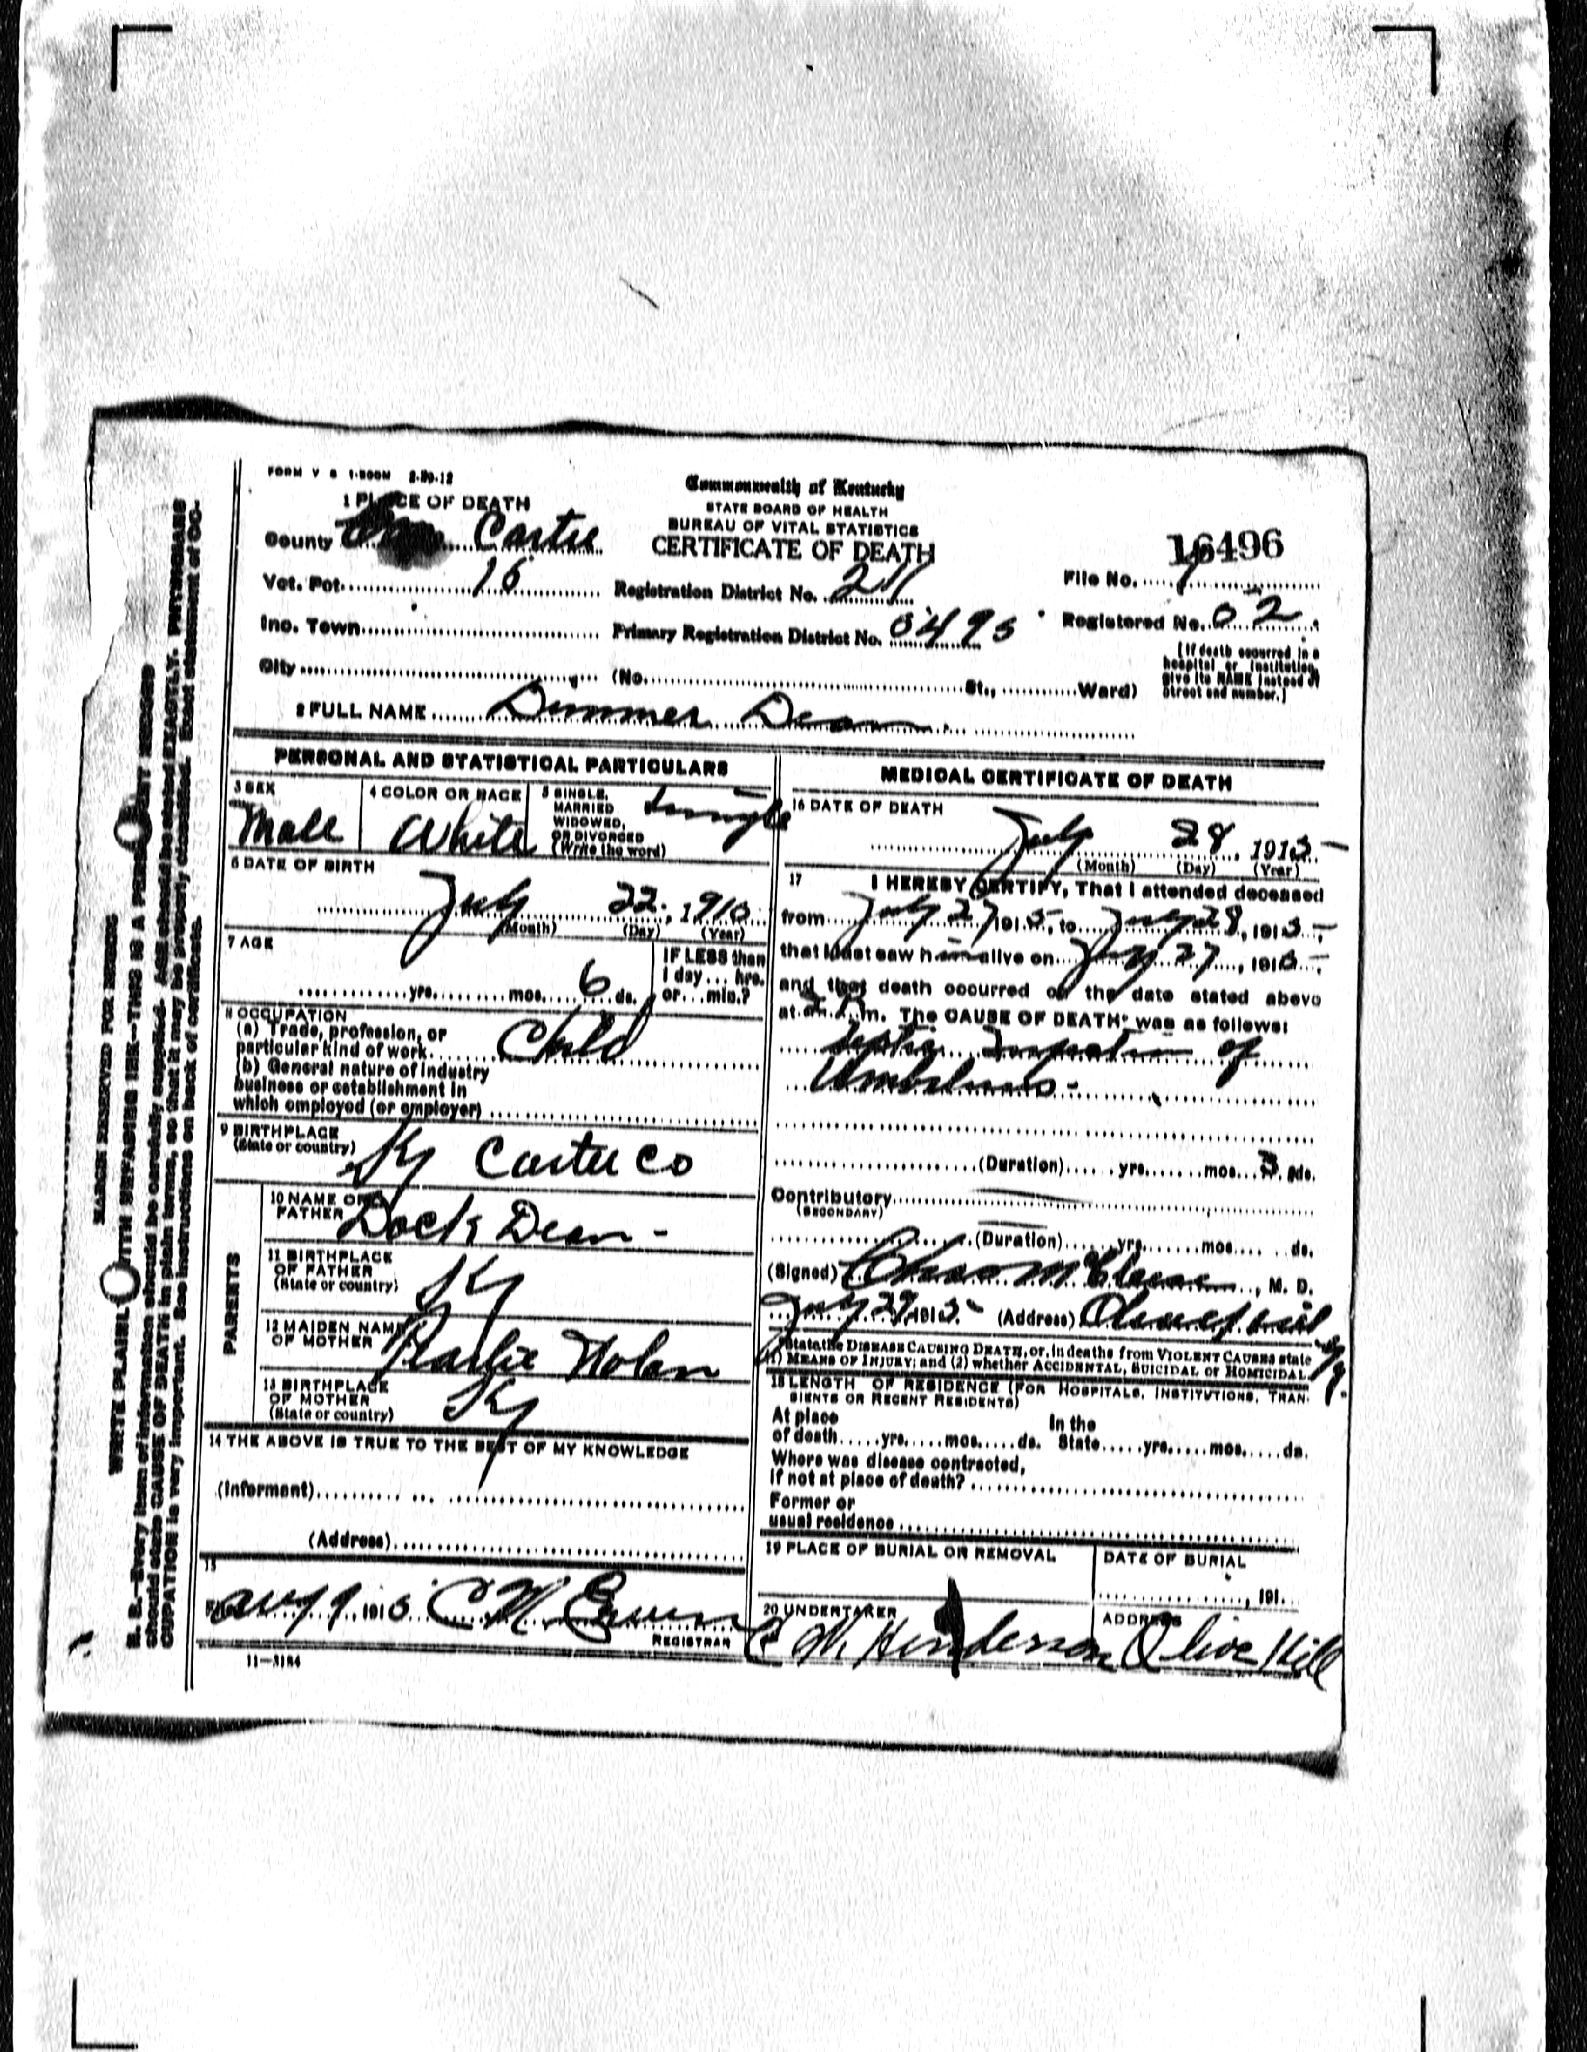 FORM V S 1-500M 2-29-12
Commonwealth of Kentucky
STATE BOARD OF HEALTH
BUREAU OF VITAL STATISTICS
CERTIFICATE OF DEATH
1 PLACE OF DEATH
County Carter
16496
Vot. Pct. 16 Registration District No. 211 File No.
Inc. Town Primary Registration District No. 0495 Registered No. 62
City (No. St., Ward)
[If death occurred in a
hospital or institution,
give its NAME instead of
street and number.]
2 FULL NAME Dummer Dean
PERSONAL AND STATISTICAL PARTICULARS
3 SEX
Male
4 COLOR OR RACE
White
5 SINGLE,
MARRIED
WIDOWED,
OR DIVORCED
(Write the word)
Single
6 DATE OF BIRTH
July 22, 1915
(Month) (Day) (Year)
7 AGE
yrs. mos. 6 ds.
IF LESS than
1 day... hrs.
or... min.?
8 OCCUPATION
(a) Trade, profession, or
particular kind of work Child
(b) General nature of industry
business or establishment in
which employed (or employer)
9 BIRTHPLACE
(State or country)
Ky Carter Co
PARENTS
10 NAME OF
FATHER Dock Dean
11 BIRTHPLACE
OF FATHER
(State or country) Ky
12 MAIDEN NAME
OF MOTHER Nolan
13 BIRTHPLACE
OF MOTHER
(State or country) Ky
14 THE ABOVE IS TRUE TO THE BEST OF MY KNOWLEDGE
(Informant)
(Address)
15
Aug 9, 1915 C M
REGISTRAR
11-3184
MEDICAL CERTIFICATE OF DEATH
16 DATE OF DEATH
July 28, 1915
(Month) (Day) (Year)
17 I HEREBY CERTIFY, That I attended deceased
from July 27 1915, to July 28, 1915,
that I last saw him alive on July 27, 1915,
and that death occurred on the date stated above
at m. The CAUSE OF DEATH* was as follows:
Septic Infection of
Umbilicus
(Duration) yrs. mos. 3 ds.
Contributory
(SECONDARY)
(Duration) yrs. mos. ds.
(Signed) , M. D.
July 29, 1915 (Address) Olive Hill
Ky
*State the DISEASE CAUSING DEATH, or, in deaths from VIOLENT CAUSES state
(1) MEANS OF INJURY; and (2) whether ACCIDENTAL, SUICIDAL or HOMICIDAL.
18 LENGTH OF RESIDENCE (FOR HOSPITALS, INSTITUTIONS, TRAN-
SIENTS OR RECENT RESIDENTS)
At place In the
of death yrs. mos. ds. State yrs. mos. ds.
Where was disease contracted,
if not at place of death?
Former or
usual residence
19 PLACE OF BURIAL OR REMOVAL
DATE OF BURIAL
, 191
20 UNDERTAKER
C W Henderson
ADDRESS
Olive Hill
MARGIN RESERVED FOR BINDING
WRITE PLAINLY WITH UNFADING INK—THIS IS A PERMANENT RECORD
N. B.—Every item of information should be carefully supplied. AGE should be stated EXACTLY. PHYSICIANS
should state CAUSE OF DEATH in plain terms, so that it may be properly classified. Exact statement of OC-
CUPATION is very important. See instructions on back of certificate.